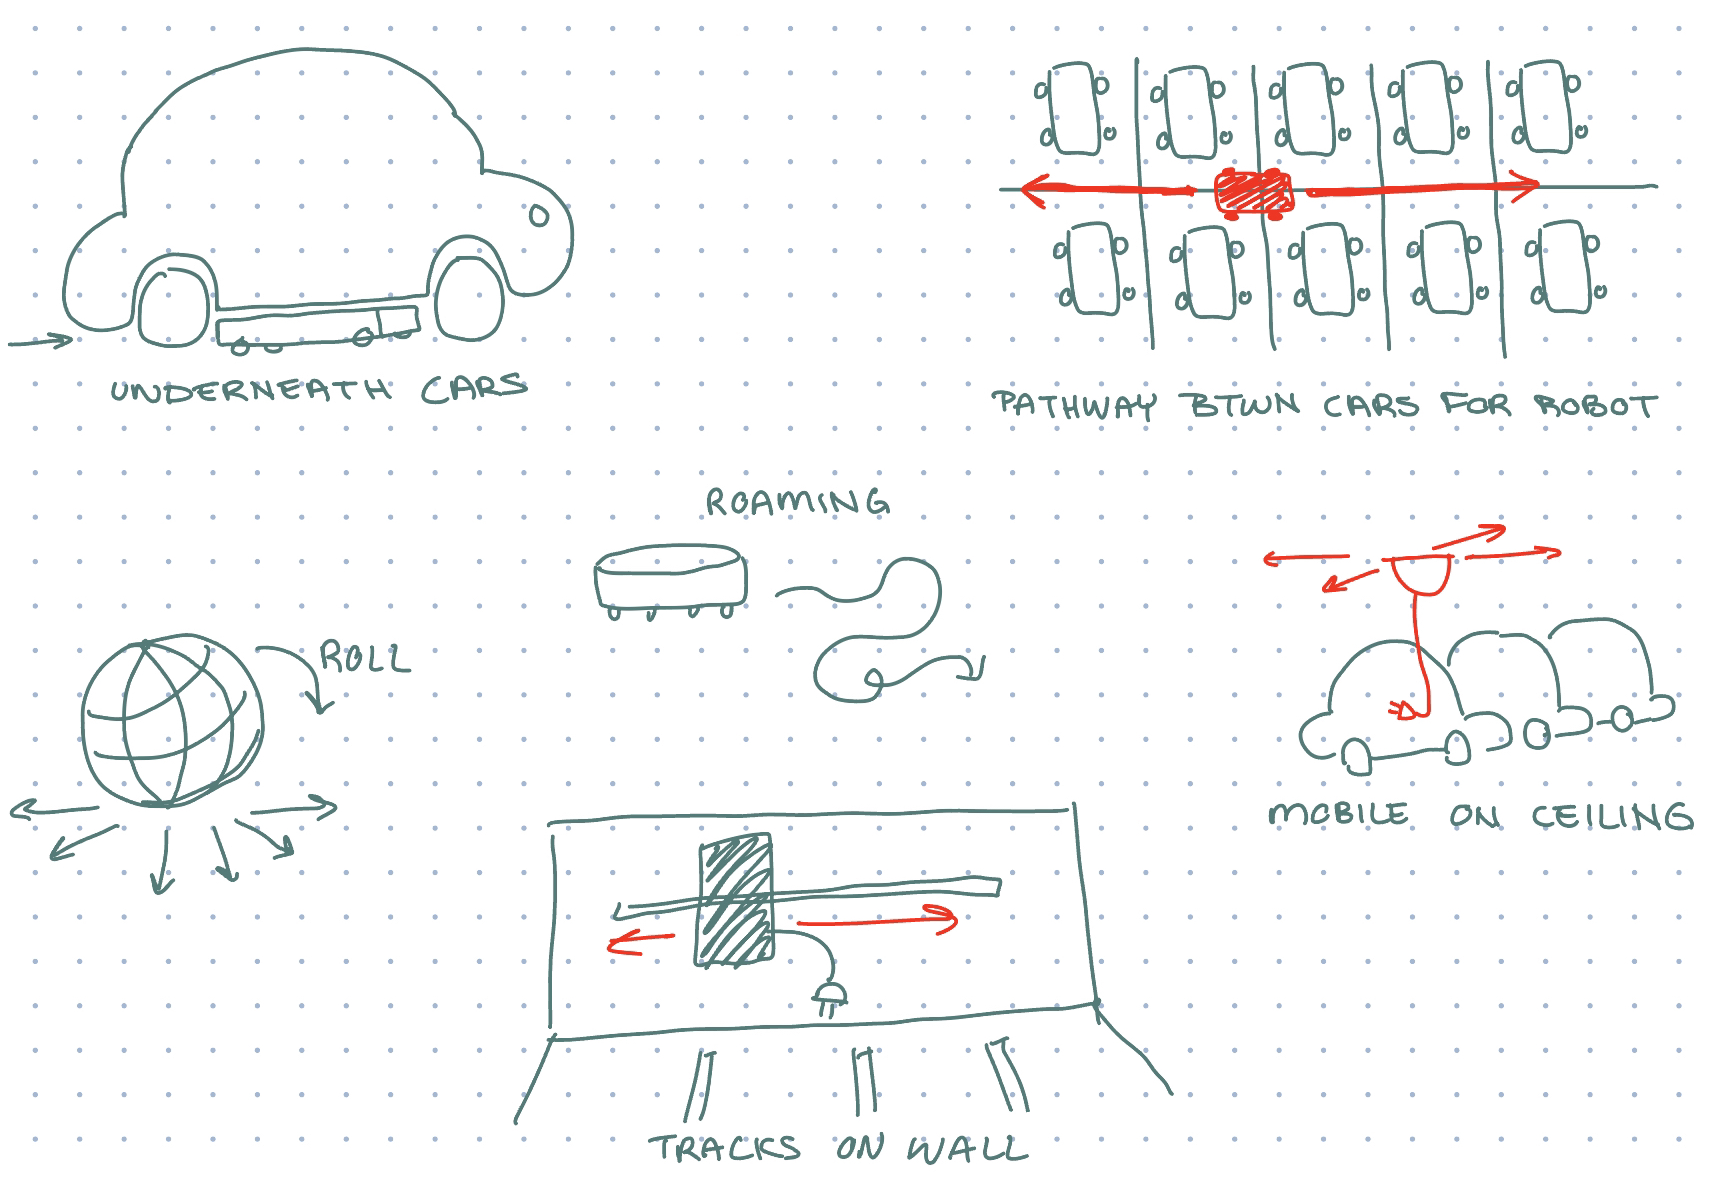 UNDERNEATH CARS
PATHWAY BTWN CARS FOR ROBOT
ROAMING
ROLL
MOBILE ON CEILING
TRACKS ON WALL